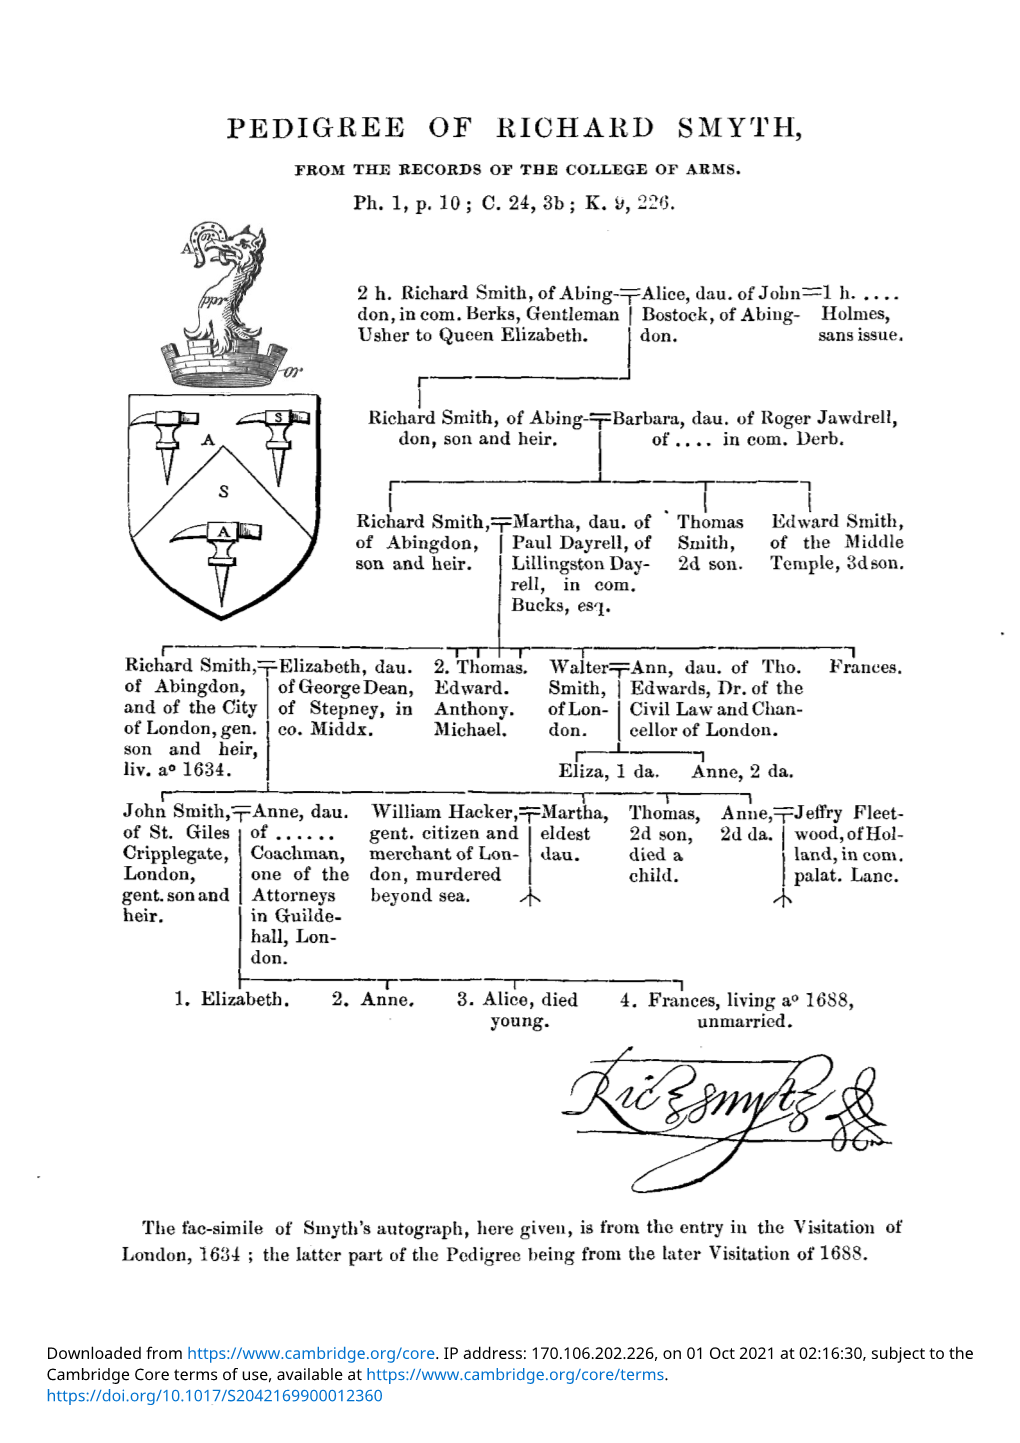 PEDIGREE OF RICHARD SMYTH,
FROM THE RECORDS OF THE COLLEGE OF ARMS.
Ph. 1, p. 10; C. 24, 3b; K. 9, 226.
A
or
ppr
or
S
A
S
A
2 h. Richard Smith, of Abing-
don, in com. Berks, Gentleman
Usher to Queen Elizabeth.
Alice, dau. of John
Bostock, of Abing-
don.
1 h. ....
Holmes,
sans issue.
Richard Smith, of Abing-
don, son and heir.
Barbara, dau. of Roger Jawdrell,
of .... in com. Derb.
Richard Smith,
of Abingdon,
son and heir.
Martha, dau. of
Paul Dayrell, of
Lillingston Day-
rell, in com.
Bucks, esq.
Thomas
Smith,
2d son.
Edward Smith,
of the Middle
Temple, 3d son.
Richard Smith,
of Abingdon,
and of the City
of London, gen.
son and heir,
liv. aº 1634.
Elizabeth, dau.
of George Dean,
of Stepney, in
co. Middx.
2. Thomas.
Edward.
Anthony.
Michael.
Walter
Smith,
of Lon-
don.
Ann, dau. of Tho.
Edwards, Dr. of the
Civil Law and Chan-
cellor of London.
Frances.
Eliza, 1 da.
Anne, 2 da.
John Smith,
of St. Giles
Cripplegate,
London,
gent. son and
heir.
Anne, dau.
of ......
Coachman,
one of the
Attorneys
in Guilde-
hall, Lon-
don.
William Hacker,
gent. citizen and
merchant of Lon-
don, murdered
beyond sea.
Martha,
eldest
dau.
Thomas,
2d son,
died a
child.
Anne,
2d da.
Jeffry Fleet-
wood, of Hol-
land, in com.
palat. Lanc.
1. Elizabeth.
2. Anne.
3. Alice, died
young.
4. Frances, living aº 1688,
unmarried.
Ric: Smyth
The fac-simile of Smyth's autograph, here given, is from the entry in the Visitation of
London, 1634 ; the latter part of the Pedigree being from the later Visitation of 1688.
Downloaded from https://www.cambridge.org/core. IP address: 170.106.202.226, on 01 Oct 2021 at 02:16:30, subject to the
Cambridge Core terms of use, available at https://www.cambridge.org/core/terms.
https://doi.org/10.1017/S2042169900012360